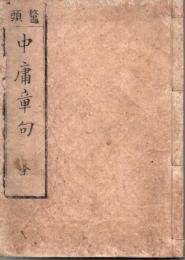 鼇頭
中庸章句 全